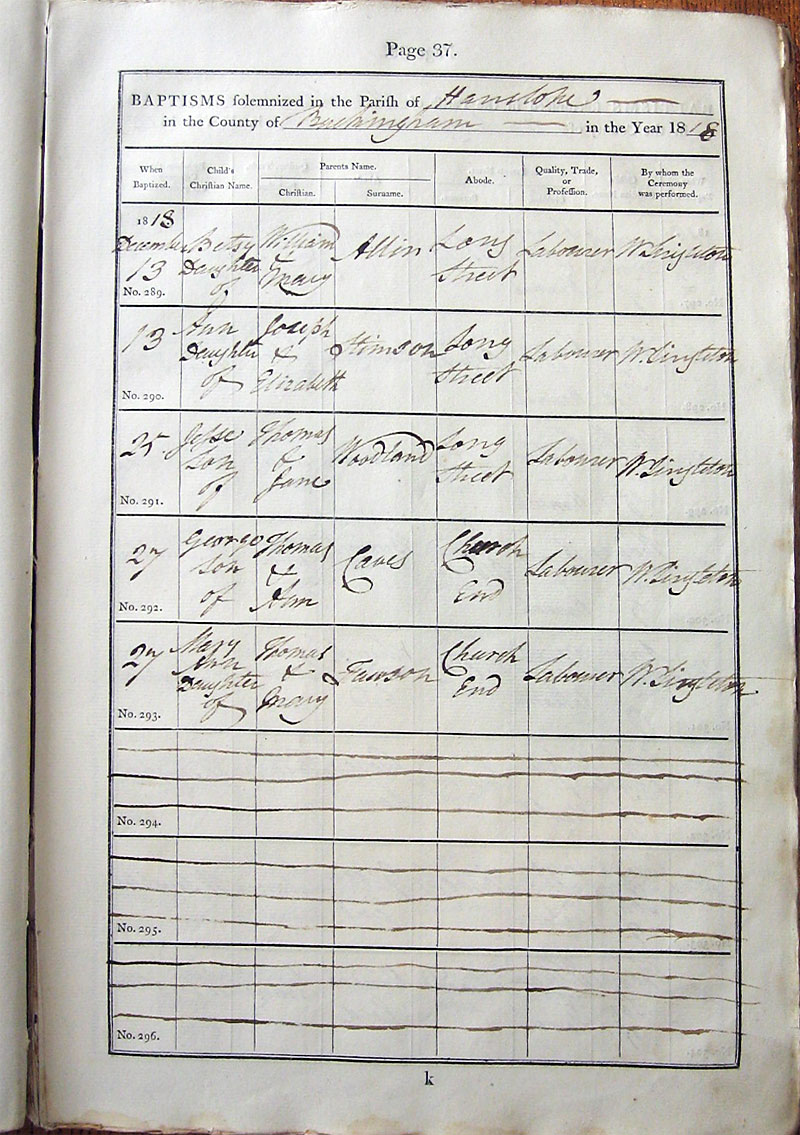 Page 37.
BAPTISMS solemnized in the Parish of Hanslope
in the County of Buckingham in the Year 1818
When Baptized.
Child's Christian Name.
Parents Name.
Christian.
Surname.
Abode.
Quality, Trade, or Profession.
By whom the Ceremony was performed.
1818
December 13
No. 289.
Betsy Daughter of
William & Mary
Allin
Long Street
Labourer
W. Singleton
13
No. 290.
Ann Daughter of
Joseph & Elizabeth
Stimson
Long Street
Labourer
W. Singleton
25
No. 291.
Jesse Son of
Thomas & Jane
Woodland
Long Street
Labourer
W. Singleton
27
No. 292.
George Son of
Thomas & Ann
Caves
Church End
Labourer
W. Singleton
27
No. 293.
Mary Ann Daughter of
Thomas & Mary
Church End
Labourer
W. Singleton
No. 294.
No. 295.
No. 296.
k